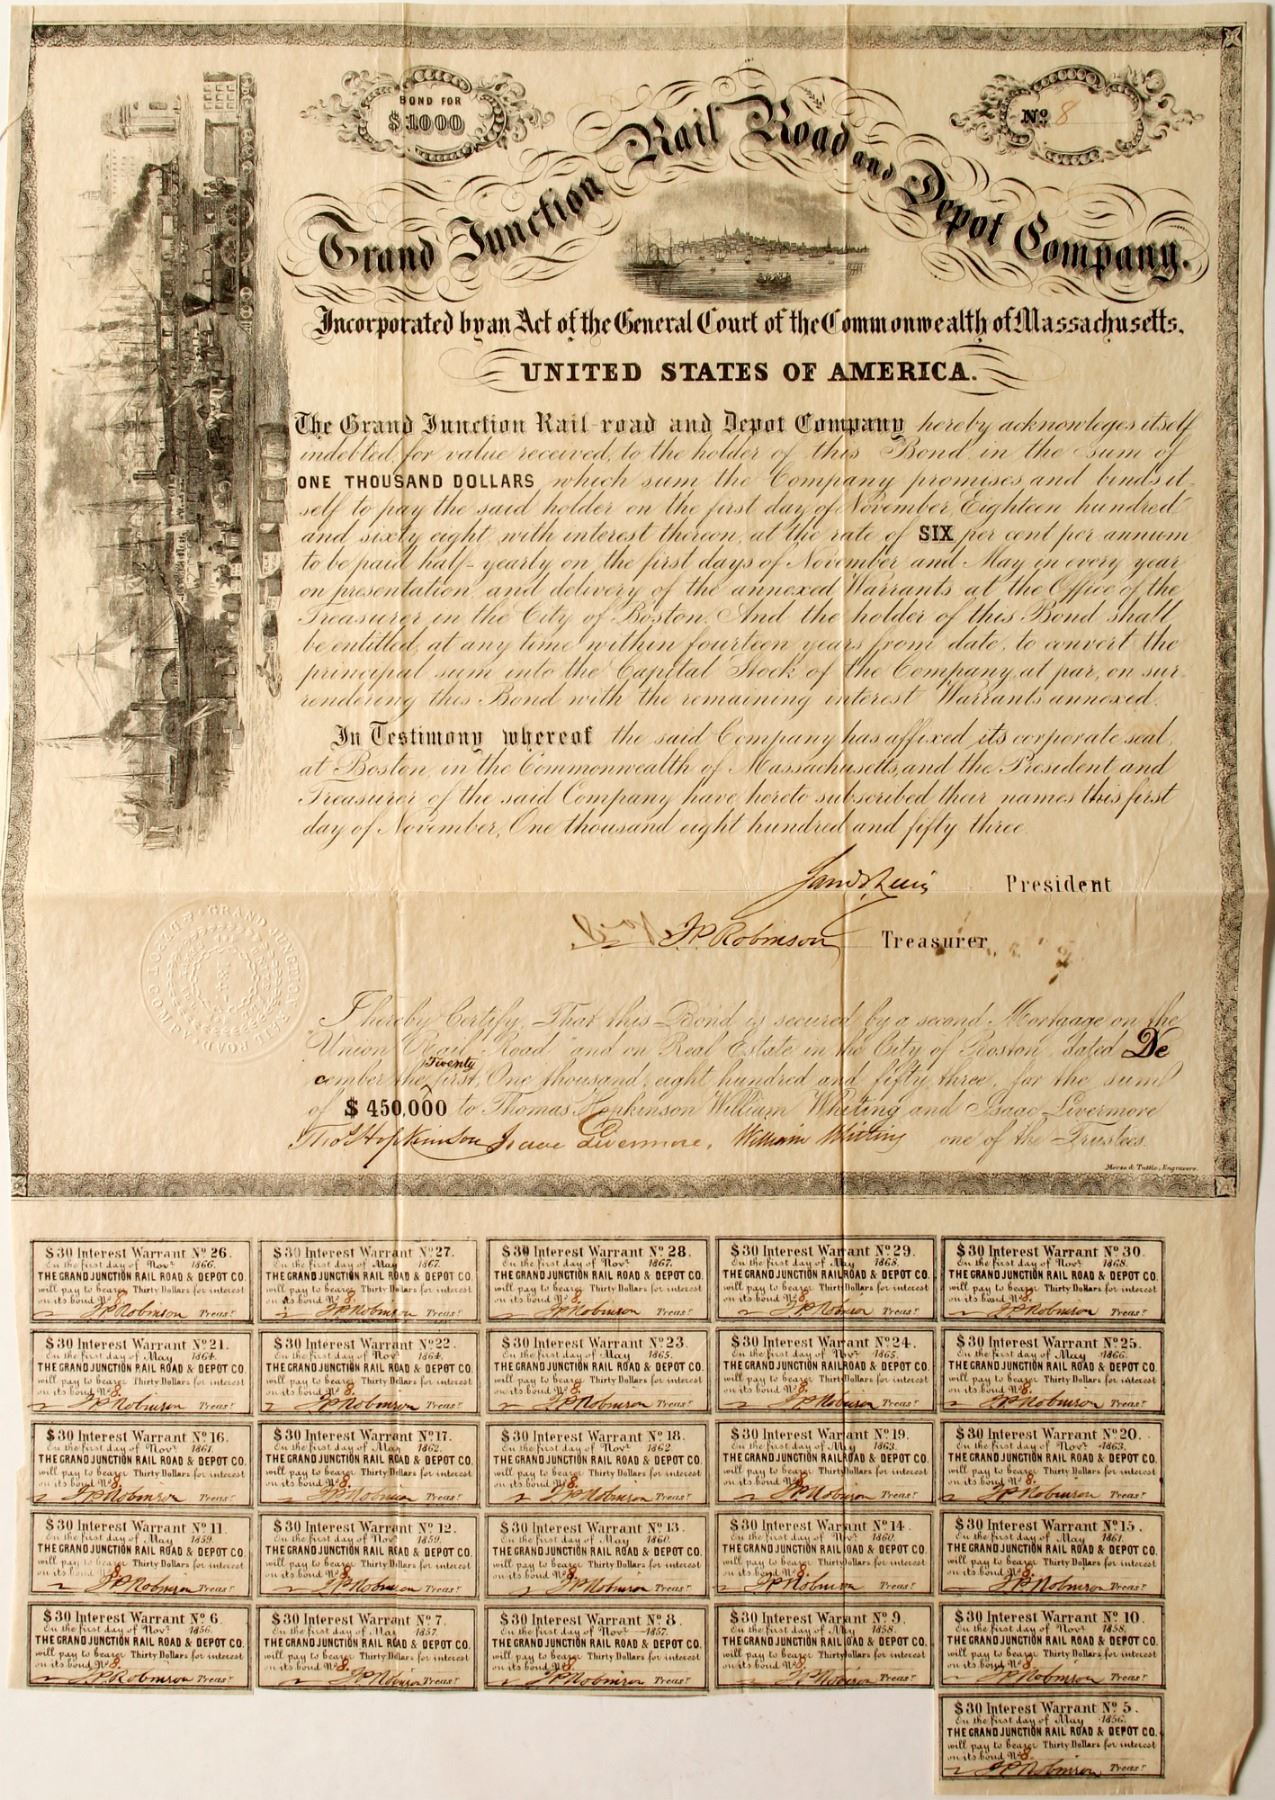 BOND FOR
$1000
Nº 8
Grand Junction Rail Road and Depot Company.
Incorporated by an Act of the General Court of the Commonwealth of Massachusetts,
UNITED STATES OF AMERICA.
The Grand Junction Rail-road and Depot Company hereby acknowleges itself
indebted, for value received, to the holder of this Bond, in the sum of
ONE THOUSAND DOLLARS which sum the Company promises and binds it-
self to pay the said holder on the first day of November, Eighteen hundred
and sixty eight, with interest thereon, at the rate of SIX per cent per annum
to be paid half-yearly on the first days of November and May in every year
on presentation and delivery of the annexed Warrants at the Office of the
Treasurer in the City of Boston. And the holder of this Bond shall
be entitled, at any time within fourteen years from date, to convert the
principal sum into the Capital Stock of the Company at par, on sur-
rendering this Bond with the remaining interest Warrants annexed.
In Testimony whereof the said Company has affixed its corporate seal,
at Boston, in the Commonwealth of Massachusetts, and the President and
Treasurer of the said Company have hereto subscribed their names this first
day of November, One thousand eight hundred and fifty three.
President
J.P. Robinson Treasurer,
GRAND JUNCTION RAIL ROAD & DEPOT COMPANY
I hereby Certify, That this Bond is secured by a second Mortgage on the
Union Rail-Road and on Real Estate in the City of Boston, dated De
cember the Twenty first, One thousand, eight hundred and fifty three, for the sum
of $450,000 to Thomas Hopkinson William Whiting and Isaac Livermore
Thos Hopkinson Isaac Livermore, William Whiting one of the Trustees.
Morse & Tuttle, Engravers.
$30 Interest Warrant Nº 26.
On the first day of Novr. 1866.
THE GRAND JUNCTION RAIL ROAD & DEPOT CO.
will pay to bearer Thirty Dollars for interest
on its bond Nº 8.
J.P. Robinson Treasr
$30 Interest Warrant Nº 27.
On the first day of May 1867.
THE GRAND JUNCTION RAIL ROAD & DEPOT CO.
will pay to bearer Thirty Dollars for interest
on its bond Nº 8.
J.P. Robinson Treasr
$30 Interest Warrant Nº 28.
On the first day of Novr. 1867.
THE GRAND JUNCTION RAIL ROAD & DEPOT CO.
will pay to bearer Thirty Dollars for interest
on its bond Nº 8.
J.P. Robinson Treasr
$30 Interest Warrant Nº 29.
On the first day of May 1868.
THE GRAND JUNCTION RAIL ROAD & DEPOT CO.
will pay to bearer Thirty Dollars for interest
on its bond Nº 8.
J.P. Robinson Treasr
$30 Interest Warrant Nº 30.
On the first day of Novr. 1868.
THE GRAND JUNCTION RAIL ROAD & DEPOT CO.
will pay to bearer Thirty Dollars for interest
on its bond Nº 8.
J.P. Robinson Treasr
$30 Interest Warrant Nº 21.
On the first day of May 1864.
THE GRAND JUNCTION RAIL ROAD & DEPOT CO.
will pay to bearer Thirty Dollars for interest
on its bond Nº 8.
J.P. Robinson Treasr
$30 Interest Warrant Nº 22.
On the first day of Novr 1864.
THE GRAND JUNCTION RAIL ROAD & DEPOT CO.
will pay to bearer Thirty Dollars for interest
on its bond Nº 8.
J.P. Robinson Treasr
$30 Interest Warrant Nº 23.
On the first day of May 1865.
THE GRAND JUNCTION RAIL ROAD & DEPOT CO.
will pay to bearer Thirty Dollars for interest
on its bond Nº 8.
J.P. Robinson Treasr
$30 Interest Warrant Nº 24.
On the first day of Novr. 1865.
THE GRAND JUNCTION RAIL ROAD & DEPOT CO.
will pay to bearer Thirty Dollars for interest
on its bond Nº 8.
J.P. Robinson Treasr
$30 Interest Warrant Nº 25.
On the first day of May 1866.
THE GRAND JUNCTION RAIL ROAD & DEPOT CO.
will pay to bearer Thirty Dollars for interest
on its bond Nº 8.
J.P. Robinson Treasr
$30 Interest Warrant Nº 16.
On the first day of Novr. 1861.
THE GRAND JUNCTION RAIL ROAD & DEPOT CO.
will pay to bearer Thirty Dollars for interest
on its bond Nº 8.
J.P. Robinson Treasr
$30 Interest Warrant Nº 17.
On the first day of May 1862.
THE GRAND JUNCTION RAIL ROAD & DEPOT CO.
will pay to bearer Thirty Dollars for interest
on its bond Nº 8.
J.P. Robinson Treasr
$30 Interest Warrant Nº 18.
On the first day of Novr. 1862
THE GRAND JUNCTION RAIL ROAD & DEPOT CO.
will pay to bearer Thirty Dollars for interest
on its bond Nº 8.
J.P. Robinson Treasr
$30 Interest Warrant Nº 19.
On the first day of May 1863.
THE GRAND JUNCTION RAIL ROAD & DEPOT CO.
will pay to bearer Thirty Dollars for interest
on its bond Nº 8.
J.P. Robinson Treasr
$30 Interest Warrant Nº 20.
On the first day of Novr. 1863.
THE GRAND JUNCTION RAIL ROAD & DEPOT CO.
will pay to bearer Thirty Dollars for interest
on its bond Nº 8.
J.P. Robinson Treasr
$30 Interest Warrant Nº 11.
On the first day of May 1859
THE GRAND JUNCTION RAIL ROAD & DEPOT CO.
will pay to bearer Thirty Dollars for interest
on its bond Nº 8.
J.P. Robinson Treasr
$30 Interest Warrant Nº 12.
On the first day of Novr 1859.
THE GRAND JUNCTION RAIL ROAD & DEPOT CO.
will pay to bearer Thirty Dollars for interest
on its bond Nº 8.
J.P. Robinson Treasr
$30 Interest Warrant Nº 13.
On the first day of May 1860.
THE GRAND JUNCTION RAIL ROAD & DEPOT CO.
will pay to bearer Thirty Dollars for interest
on its bond Nº 8.
J.P. Robinson Treasr
$30 Interest Warrant Nº 14.
On the first day of Novr. 1860.
THE GRAND JUNCTION RAIL ROAD & DEPOT CO.
will pay to bearer Thirty Dollars for interest
on its bond Nº 8.
J.P. Robinson Treasr
$30 Interest Warrant Nº 15.
On the first day of May 1861.
THE GRAND JUNCTION RAIL ROAD & DEPOT CO.
will pay to bearer Thirty Dollars for interest
on its bond Nº 8.
J.P. Robinson Treasr
$30 Interest Warrant Nº 6.
On the first day of Novr. 1856.
THE GRAND JUNCTION RAIL ROAD & DEPOT CO.
will pay to bearer Thirty Dollars for interest
on its bond Nº 8.
J.P. Robinson Treasr
$30 Interest Warrant Nº 7.
On the first day of May 1857.
THE GRAND JUNCTION RAIL ROAD & DEPOT CO.
will pay to bearer Thirty Dollars for interest
on its bond Nº 8.
J.P. Robinson Treasr
$30 Interest Warrant Nº 8.
On the first day of Novr. 1857.
THE GRAND JUNCTION RAIL ROAD & DEPOT CO.
will pay to bearer Thirty Dollars for interest
on its bond Nº 8.
J.P. Robinson Treasr
$30 Interest Warrant Nº 9.
On the first day of May 1858.
THE GRAND JUNCTION RAIL ROAD & DEPOT CO.
will pay to bearer Thirty Dollars for interest
on its bond Nº 8.
J.P. Robinson Treasr
$30 Interest Warrant Nº 10.
On the first day of Novr. 1858.
THE GRAND JUNCTION RAIL ROAD & DEPOT CO.
will pay to bearer Thirty Dollars for interest
on its bond Nº 8.
J.P. Robinson Treasr
$30 Interest Warrant Nº 5.
On the first day of May 1856.
THE GRAND JUNCTION RAIL ROAD & DEPOT CO.
will pay to bearer Thirty Dollars for interest
on its bond Nº 8.
J.P. Robinson Treasr